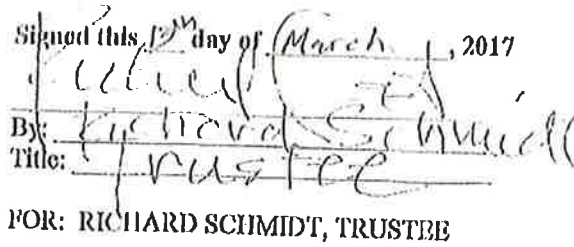 Signed this 13th day of March, 2017
By: Richard Schmidt
Title: Trustee
FOR: RICHARD SCHMIDT, TRUSTEE